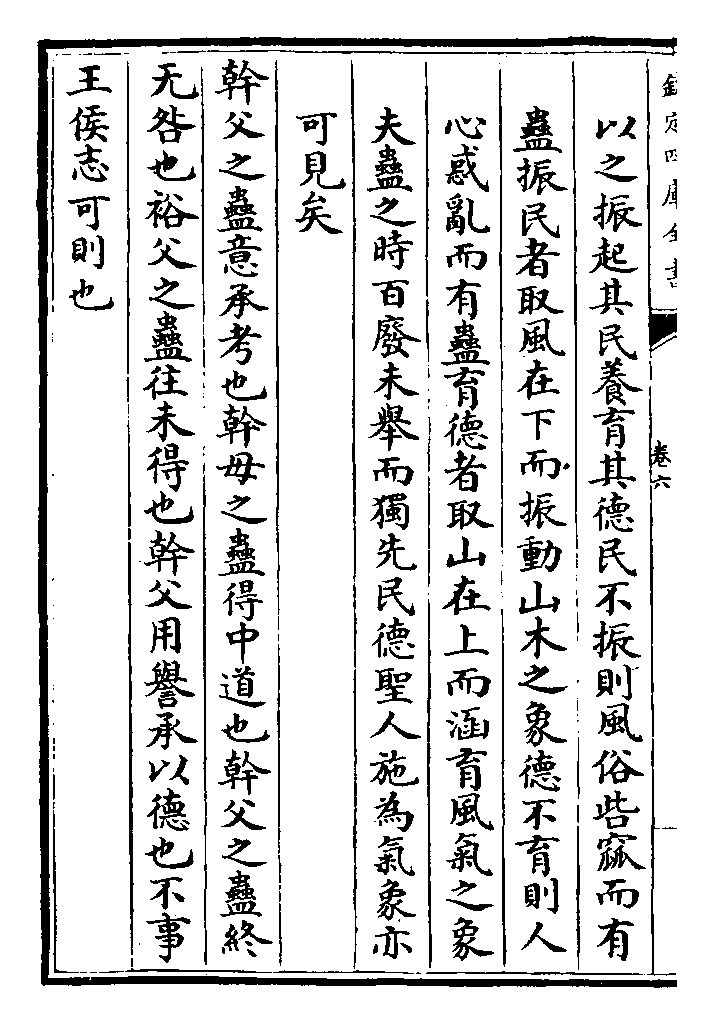 欽定四庫全書
卷六
以之振起其民養育其德民不振則風俗呰窳而有
蠱振民者取風在下而振動山木之象德不育則人
心惑亂而有蠱育德者取山在上而涵育風氣之象
夫蠱之時百廢未舉而獨先民德聖人施為氣象亦
可見矣
幹父之蠱意承考也幹母之蠱得中道也幹父之蠱終
无咎也裕父之蠱往未得也幹父用譽承以德也不事
王侯志可則也